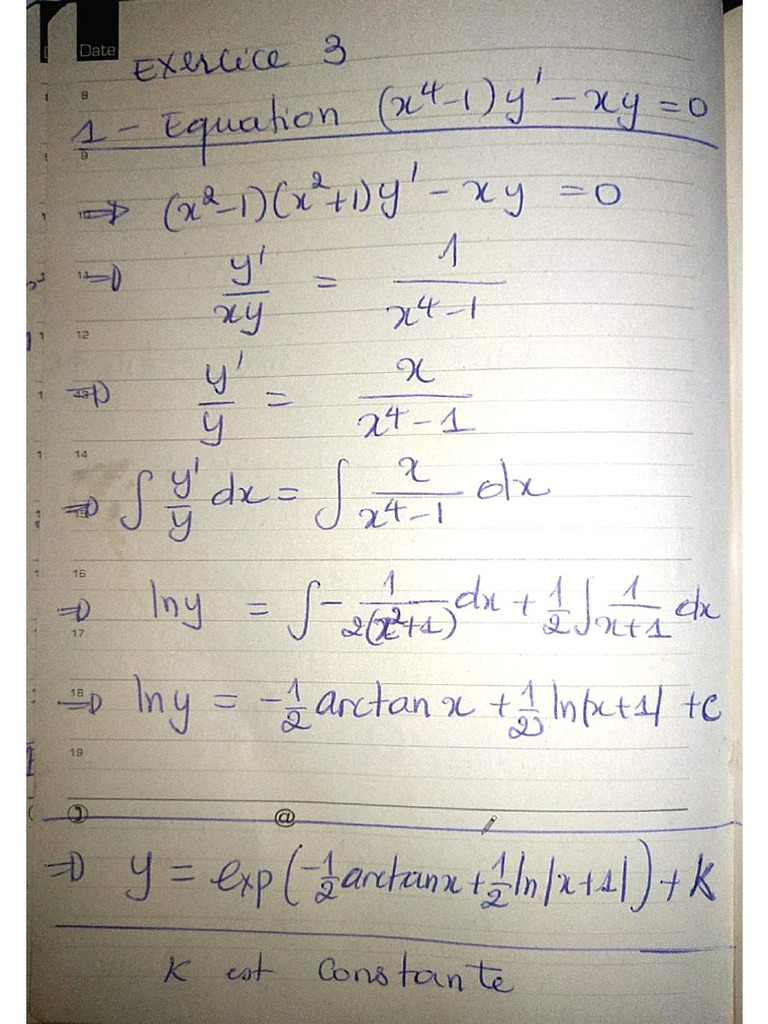 Date
Exercice 3
1 - Equation (x⁴-1)y' - xy = 0
⇒ (x²-1)(x²+1)y' - xy = 0
⇒ y'/xy = 1/(x⁴-1)
⇒ y'/y = x/(x⁴-1)
⇒ ∫ y'/y dx = ∫ x/(x⁴-1) dx
⇒ lny = ∫ - 1/(2(x²+1)) dx + 1/2 ∫ 1/(x+1) dx
⇒ lny = -1/2 arctan x + 1/2 ln|x+1| + c
⇒ y = exp(-1/2 arctanx + 1/2 ln|x+1|) + K
K est constante